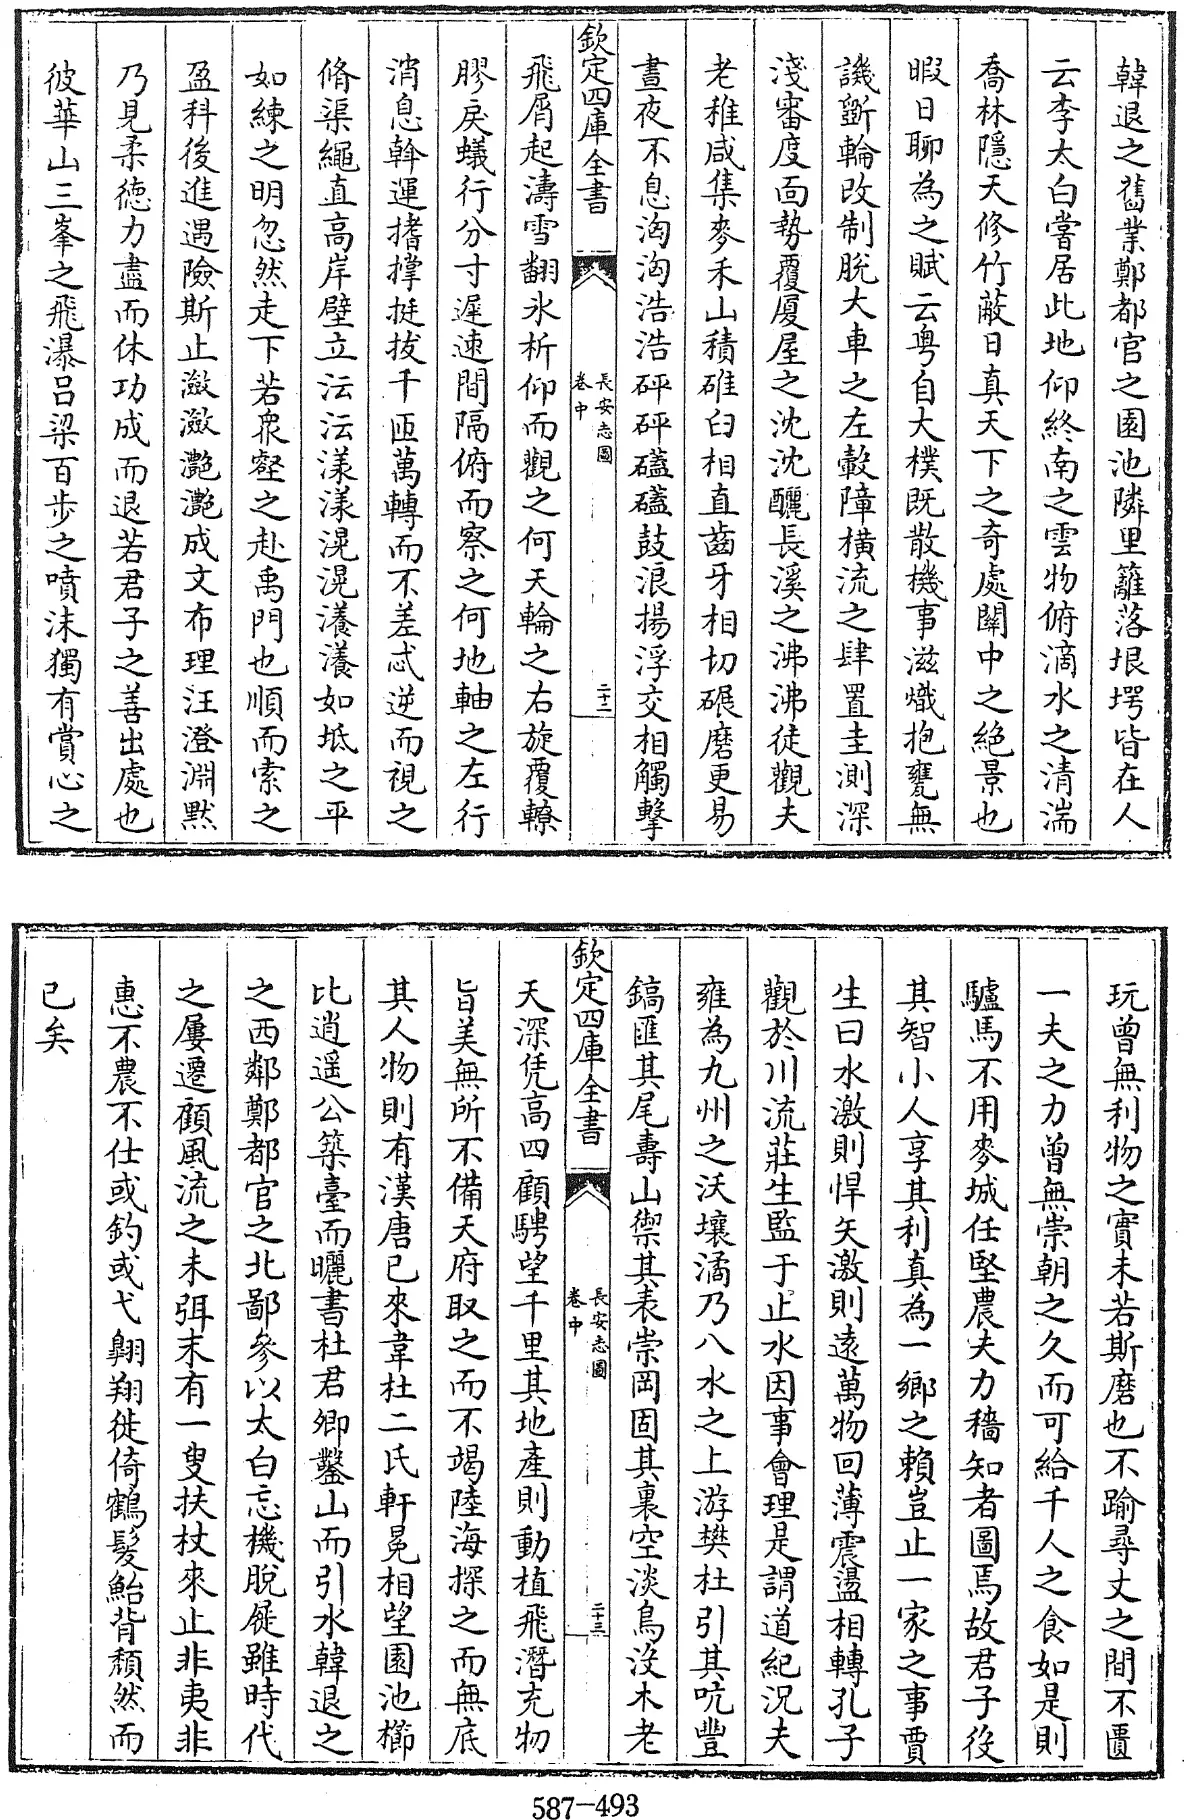 韓退之舊業鄭都官之園池隣里籬落垠堮皆在人
云李太白嘗居此地仰終南之雲物俯滈水之清湍
喬林隱天修竹蔽日真天下之奇處關中之絶景也
暇日聊為之賦云粤自大樸既散機事滋熾抱甕無
譏斵輪改制脱大車之左轂障横流之肆置圭測深
淺審度面勢覆厦屋之沈沈釃長溪之沸沸徒觀夫
老稚咸集麥禾山積碓臼相直齒牙相切碾磨更易
晝夜不息洶洶浩浩砰砰礚礚鼓浪揚浮交相觸擊
欽定四庫全書
長安志圖
卷中
二十二
飛屑起濤雪翻氷析仰而觀之何天輪之右旋覆轑
膠戾蟻行分寸遲速間隔俯而察之何地軸之左行
消息斡運搘撑挺拔千匝萬轉而不差忒逆而視之
脩渠繩直高岸壁立沄沄漾漾滉滉瀁瀁如坻之平
如練之明忽然走下若衆壑之赴禹門也順而索之
盈科後進遇險斯止瀲瀲灔灔成文布理汪澄淵黙
乃見柔徳力盡而休功成而退若君子之善出處也
彼華山三峯之飛瀑吕梁百步之噴沫獨有賞心之
玩曾無利物之實未若斯磨也不踰尋丈之間不匱
一夫之力曾無崇朝之久而可給千人之食如是則
驢馬不用麥城任堅農夫力穡知者圖焉故君子役
其智小人享其利真為一鄉之賴豈止一家之事賈
生曰水激則悍矢激則逺萬物回薄震盪相轉孔子
觀於川流莊生監于止水因事會理是謂道紀况夫
雍為九州之沃壤潏乃八水之上游樊杜引其吭豐
鎬匯其尾壽山禦其表崇岡固其裏空淡鳥没木老
欽定四庫全書
長安志圖
卷中
二十三
天深凭高四顧騁望千里其地產則動植飛潛充牣
旨美無所不備天府取之而不竭陸海探之而無底
其人物則有漢唐已來韋杜二氏軒冕相望園池櫛
比逍遥公築臺而曬書杜君卿鑿山而引水韓退之
之西鄰鄭都官之北鄙參以太白忘機脱屣雖時代
之屢遷顧風流之未弭末有一叟扶杖來止非夷非
惠不農不仕或釣或弋翺翔徙倚鶴髪鮐背頽然而
已矣
587-493